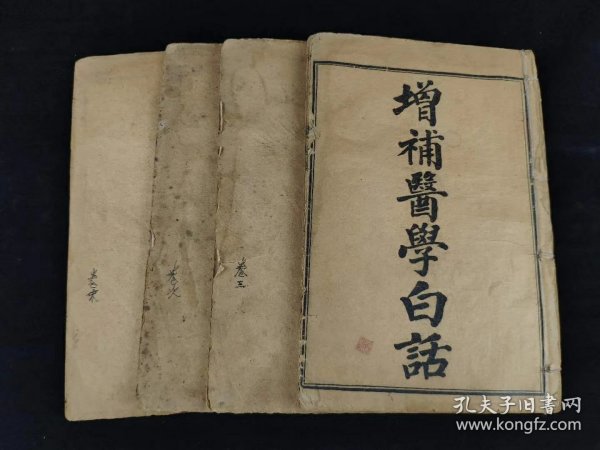 增補醫學白話
卷三
孔夫子旧書网
www.kongfz.com